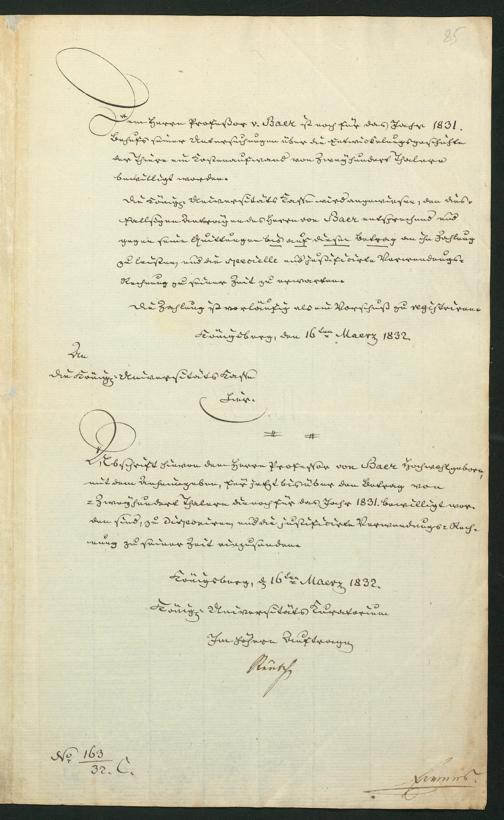 85
Dem Herrn Professor v. Baer ist noch für das Jahr 1831.
Behufs seiner Untersuchungen über die Entwickelungsgeschichte
der Thiere ein Kostenaufwand von Zweyhundert Thalern
bewilligt worden.
Die Königl. Universitäts Casse wird angewiesen, den des-
fallsigen Anträgen des Herrn von Baer entsprechend und
gegen seine Quittungen bis auf diesen Betrag an ihn Zahlung
zu leisten, und die specielle und justificirte Verwendungs-
Rechnung zu seiner Zeit zu erwarten.
Die Zahlung ist vorläufig als ein Vorschuß zu registriren.
Königsberg, den 16ten Maerz 1832.
An
die Königl. Universitäts Casse
hier.
Abschrift hievon dem Herrn Professor von Baer Hochwohlgeboren,
mit dem Anheimgeben, für jetzt bis über den Betrag von
Zweyhundert Thalern die noch für das Jahr 1831. bewilligt wor-
den sind, zu disponiren und die justificirte Verwendungs-Rech-
nung zu seiner Zeit einzusenden.
Königsberg, d 16ten Maerz 1832.
Königl. Universitäts Curatorium
Im höhern Auftrage
Reusch
No. 163/32. C.